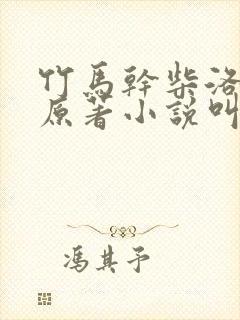 竹馬幹柴洛
原著小說叫
馮其予